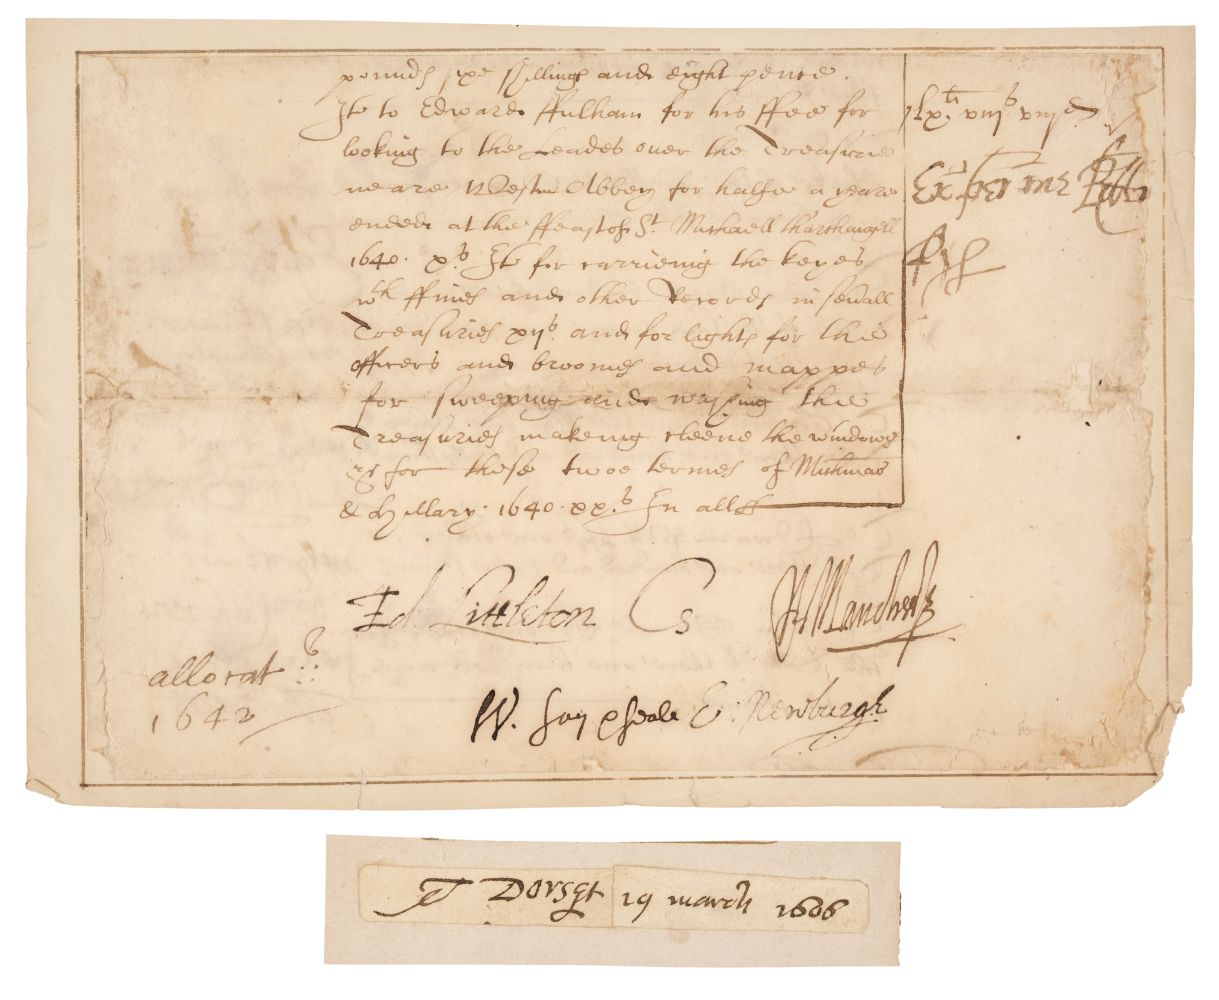 pounds sixe shillings and eight pence.
Ite to Edward ffulham for his ffee for
looking to the Leades over the Treasurie
neare Westmr Abbey for halfe a yeare
ended at the ffeast of St Michaell tharchangell
1640. xs. Ite for carrieing the keyes
wth ffines and other Records in sevall
Treasuries xijs. and for lights for the
officers and broomes and mappes
for sweeping and washing the
Treasuries makeing cleene the windowes
&c for these twoe termes of Michmas
& Hillary. 1640. xxs. In all
viijs. viijd
Ex per me
Ed. Littleton Cs
H Manchester
allocat
1642
W. Say & Seale
E. Newburgh
T Dorset 19 march 1606